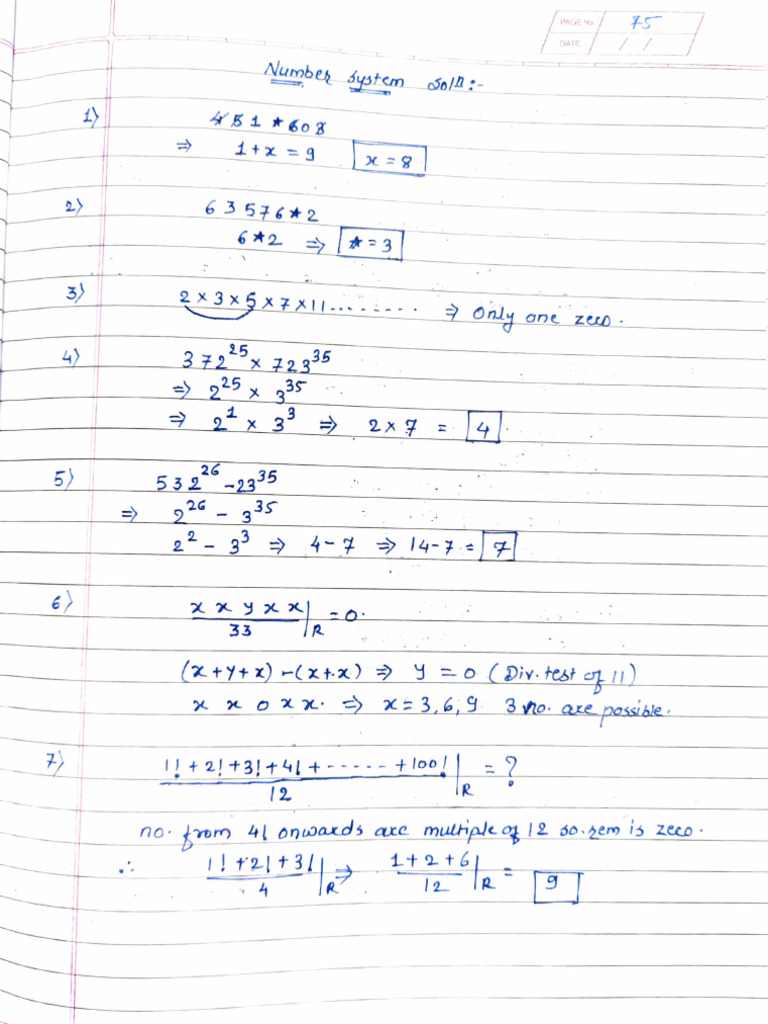 PAGE No. 75
DATE / /
Number System Solⁿ:-
1) 451*608
⇒ 1+x = 9 x = 8
2) 63576*2
6*2 ⇒ * = 3
3) 2×3×5×7×11........ ⇒ Only one zero.
4) 372²⁵ × 723³⁵
⇒ 2²⁵ × 3³⁵
⇒ 2¹ × 3³ ⇒ 2×7 = 4
5) 532²⁶ - 23³⁵
⇒ 2²⁶ - 3³⁵
2² - 3³ ⇒ 4-7 ⇒ 14-7 = 7
6) x x y x x/33 |R = 0.
(x+y+x) - (x+x) ⇒ y = 0 (Div. test of 11)
x x 0 x x. ⇒ x = 3,6,9 3 no. are possible.
7) 1!+2!+3!+4!+-----+100!/12 |R = ?
no. from 4! onwards are multiple of 12 so rem is zero.
∴ 1!+2!+3!/4 |R ⇒ 1+2+6/12 |R = 9